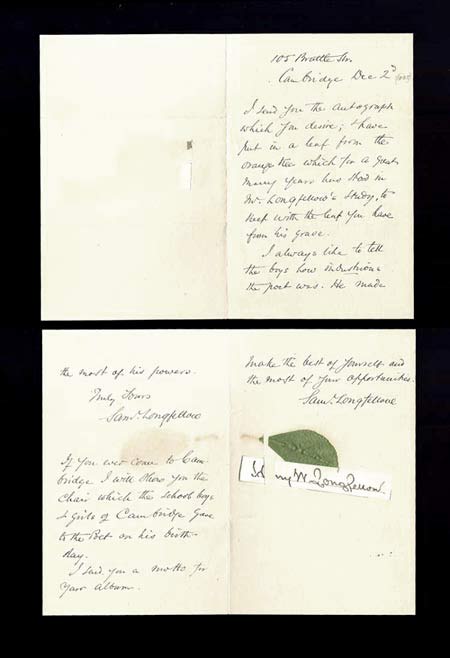 105 Brattle St.
Cambridge Dec 2d
I send you the autograph
which you desire; & have
put in a leaf from the
orange tree which for a great
many years has stood in
Mr. Longfellow's study, to
keep with the leaf you have
from his grave.
I always like to tell
the boys how industrious
the poet was. He made
the most of his powers.
Truly Yours
Saml. Longfellow
If you ever come to Cam-
bridge I will show you the
chair which the school boys
& girls of Cambridge gave
to the Poet on his birth-
day.
I send you a motto for
your album.
Make the best of yourself and
the most of your opportunities.
Saml. Longfellow
Henry W. Longfellow.